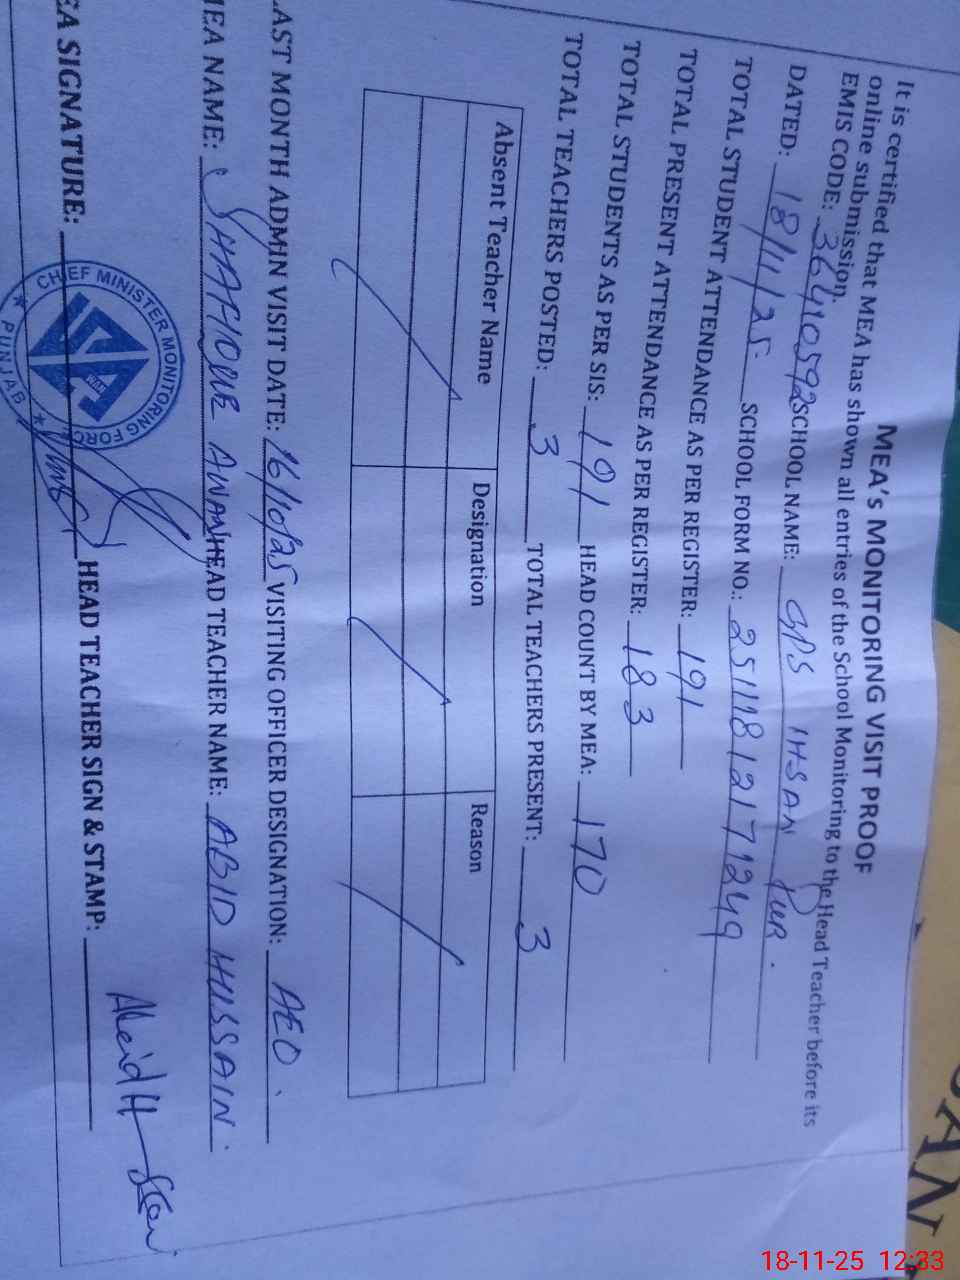 MEA's MONITORING VISIT PROOF
It is certified that MEA has shown all entries of the School Monitoring to the Head Teacher before its
online submission.
EMIS CODE: 36410592 SCHOOL NAME: GPS IHSAN PUR.
DATED: 18/11/25. SCHOOL FORM NO.: 25111812171249
TOTAL STUDENT ATTENDANCE AS PER REGISTER: 191
TOTAL PRESENT ATTENDANCE AS PER REGISTER: 183
TOTAL STUDENTS AS PER SIS: 191 HEAD COUNT BY MEA: 170
TOTAL TEACHERS POSTED: 3 TOTAL TEACHERS PRESENT: 3
Absent Teacher Name Designation Reason
LAST MONTH ADMN VISIT DATE: 16/10/25 VISITING OFFICER DESIGNATION: AEO.
MEA NAME: SHAFIQUE AWAN HEAD TEACHER NAME: ABID HUSSAIN.
EA SIGNATURE: HEAD TEACHER SIGN & STAMP:
CHIEF MINISTER MONITORING FORC
PUNJAB
AN
18-11-25 12:33